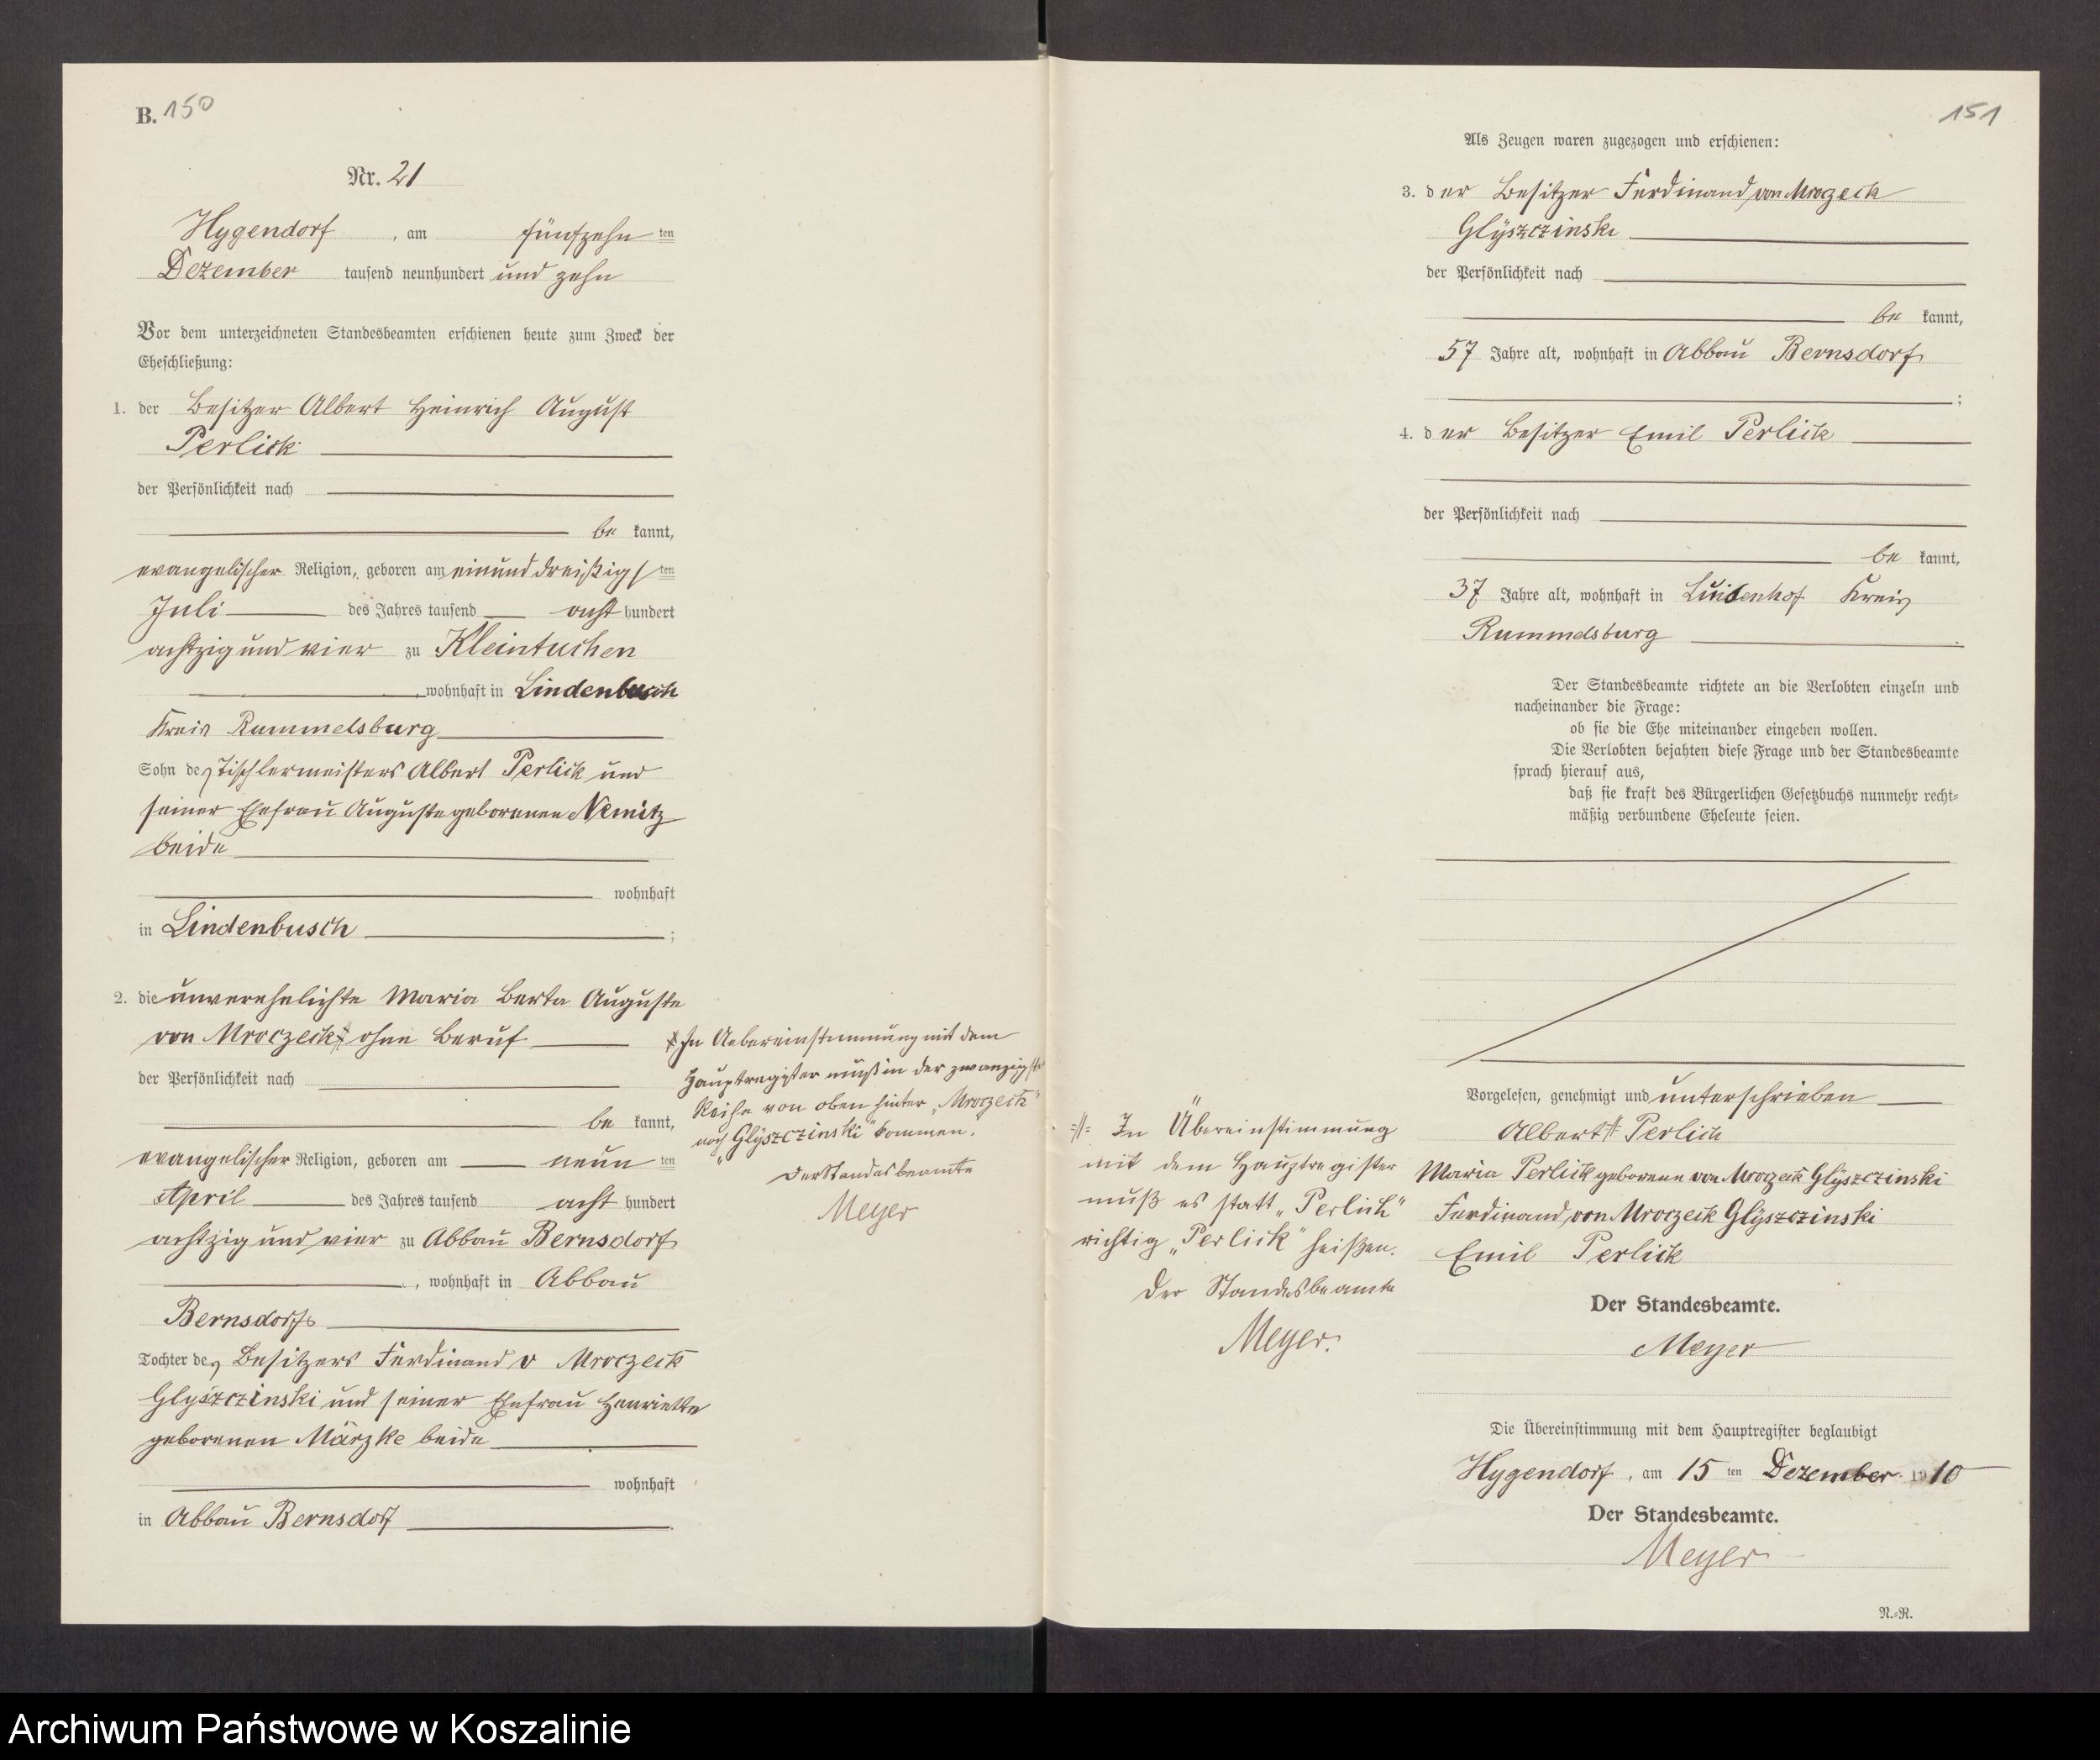 B. 150
Nr. 21
Hygendorf, am fünfzehn ten
Dezember tausend neunhundert und zehn
Vor dem unterzeichneten Standesbeamten erschienen heute zum Zweck der
Eheschließung:
1. der Besitzer Albert Heinrich August
Perlick
der Persönlichkeit nach
be kannt,
evangelischer Religion, geboren am einunddreißigsten
Juli des Jahres tausend acht hundert
achtzig und vier zu Kleintuchen
, wohnhaft in Lindenbusch
Kreis Rummelsburg
Sohn des Tischlermeisters Albert Perlick und
seiner Ehefrau Auguste geborenen Nemitz
beide
wohnhaft
in Lindenbusch ;
2. die unverehelichte Maria Berta Auguste
von Mroczeck ohne Beruf
der Persönlichkeit nach
be kannt,
evangelischer Religion, geboren am neun ten
April des Jahres tausend acht hundert
achtzig und vier zu Abbau Bernsdorf
, wohnhaft in Abbau
Bernsdorf
Tochter des Besitzers Ferdinand v Mroczeck
Glyszczinski und seiner Ehefrau Henriette
geborenen Märzke beide
wohnhaft
in Abbau Bernsdorf.
In Uebereinstimmung mit dem
Hauptregister muß in der zwanzigste
Reihe von oben hinter „Mroczeck"
noch „Glÿszczinski" kommen.
Der Standesbeamte
Meyer
151
Als Zeugen waren zugezogen und erschienen:
3. der Besitzer Ferdinand von Mroczeck
Glÿszczinski
der Persönlichkeit nach
be kannt,
57 Jahre alt, wohnhaft in Abbau Bernsdorf
;
4. der Besitzer Emil Perlick
der Persönlichkeit nach
be kannt,
37 Jahre alt, wohnhaft in Kreis
Rummelsburg.
Der Standesbeamte richtete an die Verlobten einzeln und
nacheinander die Frage:
ob sie die Ehe miteinander eingehen wollen.
Die Verlobten bejahten diese Frage und der Standesbeamte
sprach hierauf aus,
daß sie kraft des Bürgerlichen Gesetzbuchs nunmehr recht-
mäßig verbundene Eheleute seien.
Vorgelesen, genehmigt und unterschrieben
Albert Perlich
Maria Perlick geborene von Mroczeck Glÿszczinski
Ferdinand von Mroczeck Glÿszczinski
Emil Perlick
Der Standesbeamte.
Meyer
=//= In Übereinstimmung
mit dem Hauptregister
muß es statt „Perlich"
richtig „Perlick" heißen.
Der Standesbeamte
Meyer.
Die Übereinstimmung mit dem Hauptregister beglaubigt
Hygendorf, am 15 ten Dezember 1910
Der Standesbeamte.
Meyer
N.-R.
Archiwum Państwowe w Koszalinie